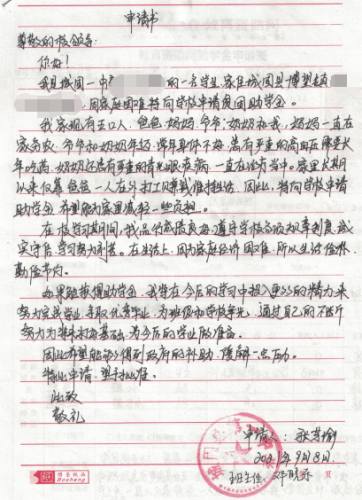 申请书
尊敬的校领导:
你好!
我是城固一中 的一名学生,家住城固县博望镇
,因家庭困难特向学校申请贫困助学金。
我家现有五口人,爸爸、妈妈、爷爷、奶奶和我,妈妈一直在
家务农,爷爷和奶奶年经 身体不好,患有严重的高血压需要长
年吃药,奶奶还患有严重的青光眼疾病,一直在治疗当中。家里长期
以来仅靠爸爸一人在外打工 维持生活,因此,特向学校申请
助学金,希望能为家里减轻一些负担。
在校学习期间,我品学 遵守学校各项规章制度,诚
实守信,学习努力刻苦。在生活上,因为家庭经济困难,所以生活俭朴,
勤俭节约。
如果能获得助学金,我将在今后的学习中投入更多的精力来
努力完成学业,争取优秀毕业,为班级和学校争光,通过自己的不断
努力为 基础,为今后的学业做准备。
因此希望能够得到政府的补助,缓解一点 。
特此申请,望予批准。
此致
敬礼
申请人:张
20 年9月8日
班主任:邓
Deesheng